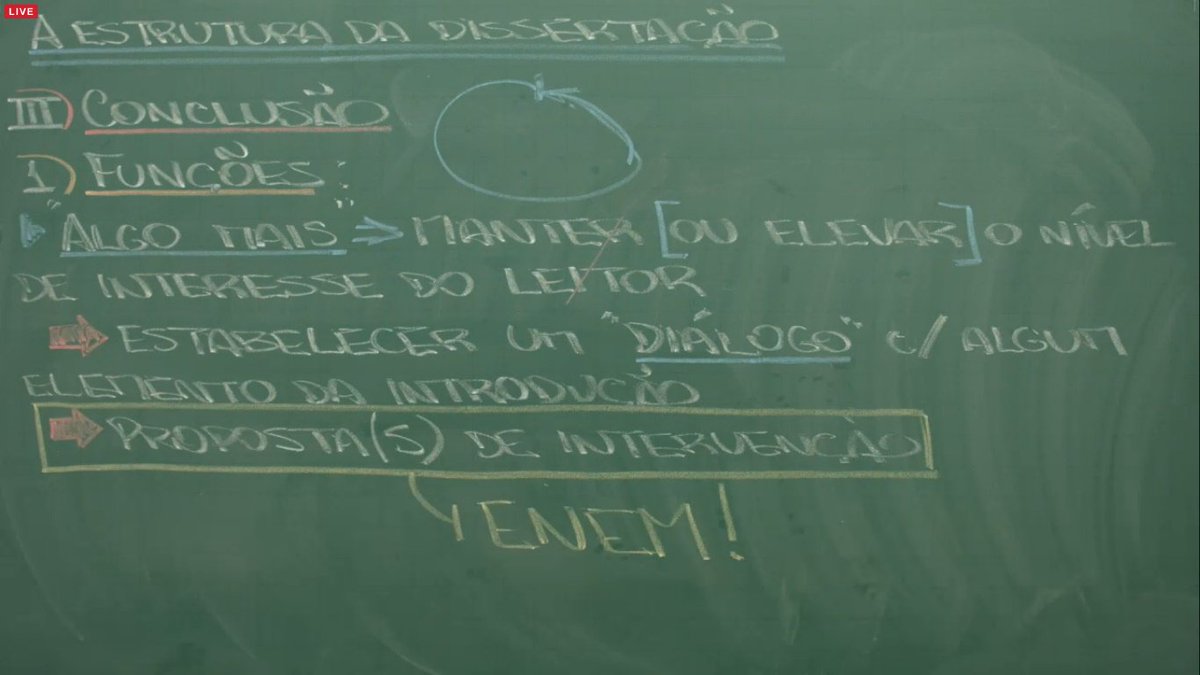 LIVE
A ESTRUTURA DA DISSERTAÇÃO
III) CONCLUSÃO
1) FUNÇÕES:
"ALGO MAIS" → MANTER [OU ELEVAR] O NÍVEL
DE INTERESSE DO LEITOR
ESTABELECER UM "DIÁLOGO" C/ ALGUM
ELEMENTO DA INTRODUÇÃO
PROPOSTA(S) DE INTERVENÇÃO
ENEM!